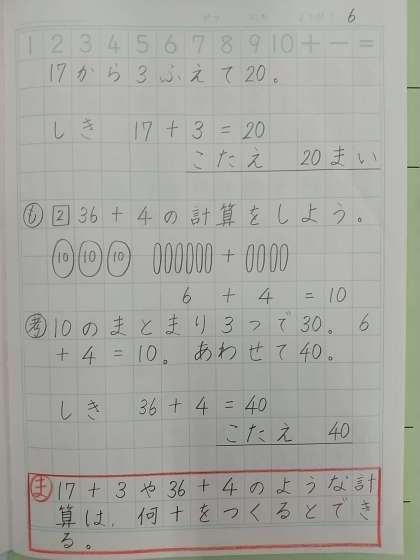 6
1 2 3 4 5 6 7 8 9 10 + − =
17から3ふえて20。
しき 17+3=20
こたえ 20まい
も 2 36+4の計算をしよう。
10 10 10 +
6 + 4 = 10
考 10のまとまり3つで30。6
+4=10。あわせて40。
しき 36+4=40
こたえ 40
ま 17+3や36+4のような計
算は、何十をつくるとでき
る。